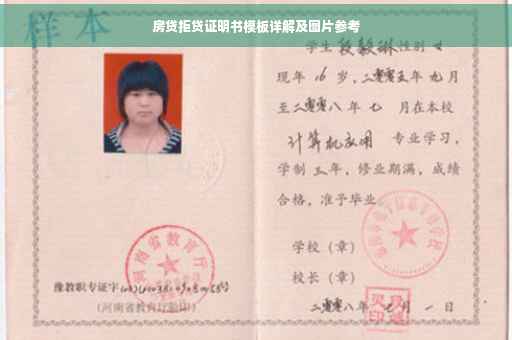 房贷拒贷证明书模板详解及图片参考
样本
学生段毅琳性别女
现年16岁,二零零五年九月
至二零零八年七月在本校
计算机应用 专业学习,
学制三年,修业期满,成绩
合格,准予毕业。
学校(章)
校长(章)
二零零八年七月一日
河南省教育厅
豫教职专证字
(河南省教育厅验印)